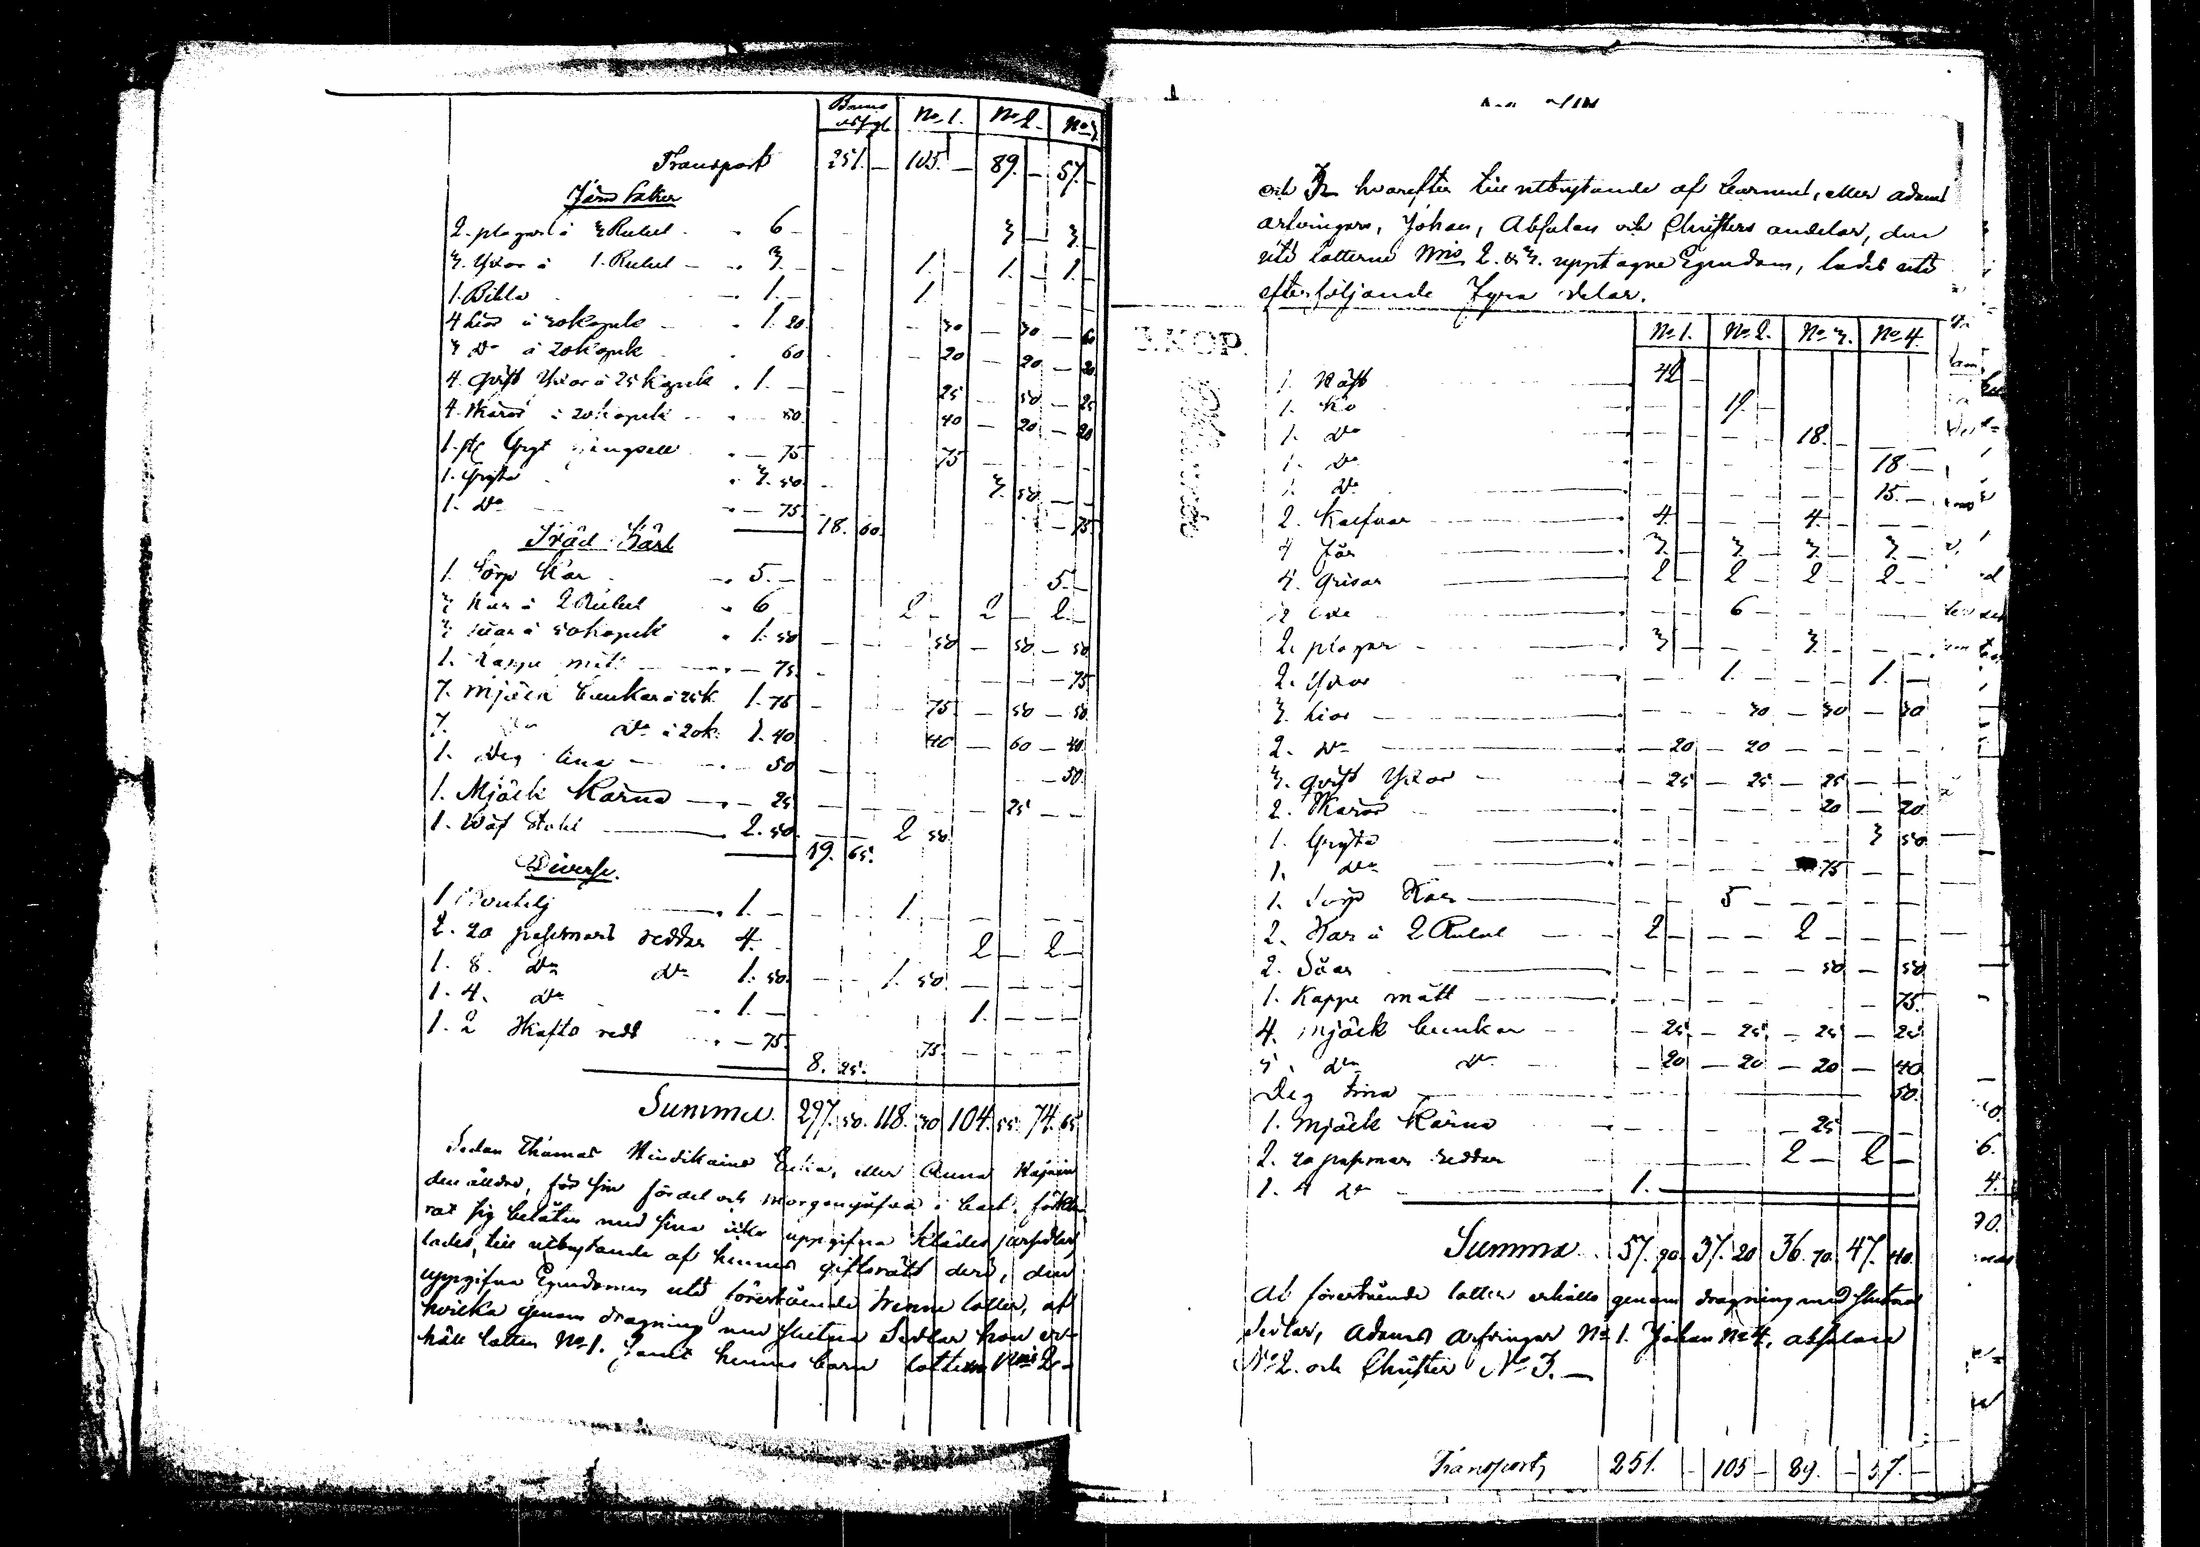 No 1. No 2. No 3
Transport 251. — 105. — 89. — 57. —
Järn Saker
2. plogar à 3 Rubel 6 — 3 — 3 —
3. Yxor à 1. Rubel — 3. — 1. — 1. — 1. —
1. 1. — 1
4 Liar à 30 kopek — 1. 20 30 — 30 — 60
3 Do à 20 kopek 60 20 — 20 — 20
4. Qvist Yxor à 25 kopek 1. — 25 — 50 — 25
4. Skäror à 20 kopek 80 40 — 20 — 20
1. 75 75
1. Gryta 3. 50 3. 50 — —
1. Do — 75 18. 60 — 75
Träd Kärl
1. Sörp Kar 5. — 5. —
3 Kar à 2 Rubel 6 2 — 2 — 2 —
3 Såar à 50 kopek 1. 50 50 — 50 — 50
1. Kappe mått — 75 — 75
7. Mjölk bunkar à 25 k. 1. 75 75 — 50 — 50
7. Do Do à 20 k. 1. 40 40 — 60 — 40
1. Deg tina — 50 — 50
1. Mjölk Kärna — 25 25 — —
1. Wäf Stohl 2. 50 2 50
19. 65
Diverse.
1 1. — 1. —
2. 20 pasmars reddar 4. 2 — 2 —
1. 8. Do Do 1. 50 1. 50
1. 4. Do 1. — 1. — — —
1. 2 Skafts redd — 75 75
8. 25
Summa 297. 50. 118. 30 104. 55. 74. 65
Sedan Thomas Hindikains Enka, eller Anna
den äldre, för sin fördel och morgongåfva
sig belåten med sina uppgifna Kläder
lades, till utbytande af hennes giftorätt deri, den
uppgifna Egendomen uti förestående trenne lotter, af
hvilka genom dragning med slutna Sedlar hon er-
höll lotten No 1. samt hennes barn lotterne Nris 2
och 3 hvarefter till utbytande af barnens, eller Adams
arfvingars, Johan, Absalon och Christers andelar, den
uti lotterne Nris 2. & 3. upptagne Egendom, lades uti
efterföljande Fyra delar.
No 1. No 2. No 3. No 4.
1. Häst 42 —
1. Ko 19. —
1. Do 18. —
1. Do 18 —
1. Do 15. —
2. Kalfvar 4. — 4. —
4 Får 3. — 3 — 3. — 3. —
4. Grisar 2 — 2 — 2 — 2 —
6 —
2. plogar 3 — 3. —
2. Yxor 1. — 1. —
3. Liar 30 — 30 — 30
2. Do — 20 — 20 — — — —
3. Qvist Yxor — 25 — 25 — 25 — —
2. Skäror 20 — 20
1. Gryta 3 50
1. Do 75 — —
1. Sörp Kar 5 —
2. Kar à 2 Rubel 2 — 2 —
2. Såar 50 — 50
1. Kappe mått 75
4. Mjölk bunkar — 25 — 25 — 25 — 25
5. Do Do — 20 — 20 — 20 — 40
Deg tina 50
1. Mjölk Kärna 25
2. 20 pasmars reddar 2 — 2 —
1. 4 Do 1. —
Summa 57. 90 37. 20 36. 70 47. 40
Af förestående lotter erhålla genom dragning med slutna
sedlar, Adams Arfvingar No 1. Johan No 4. Absalon
No 2. och Christer No 3. —
Transport 251. — 105 — 89. — 57. —